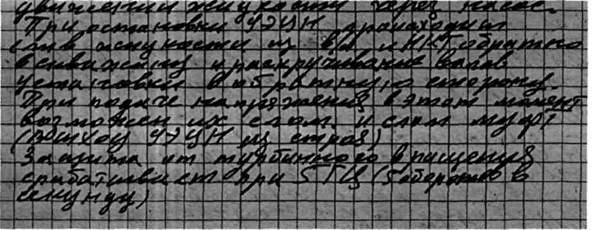 движении жидкости через насос.
При остановки УЭЦН происходит
слив жидкости из в/д и НКТ обратно
в скважину и раскручивание валов
установки в обратную сторону.
При подаче напряжения в этот момент
возможен их слом и слом муфт
(выход УЭЦН из строя)
Защита от турбинного вращения
срабатывает при 5 ГЦ (5 оборотов в
секунду)